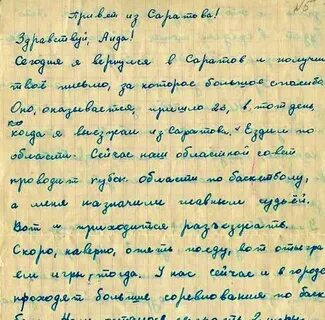 №5
Привет из Саратова!
Здравствуй, Аида!
Сегодня я вернулся в Саратов и получил
твоё письмо, за которое большое спасибо.
Оно, оказывается, пришло 28, в тот день
когда я выезжал из Саратова. Ездил по
области. Сейчас наш областной совет
проводит кубок области по баскетболу,
а меня назначили главным судьёй.
Вот и приходится разъезжать.
Скоро, наверно, опять поеду, вот отыгра
ем игры, тогда. У нас сейчас и в городе
проходят большие соревнования по баск